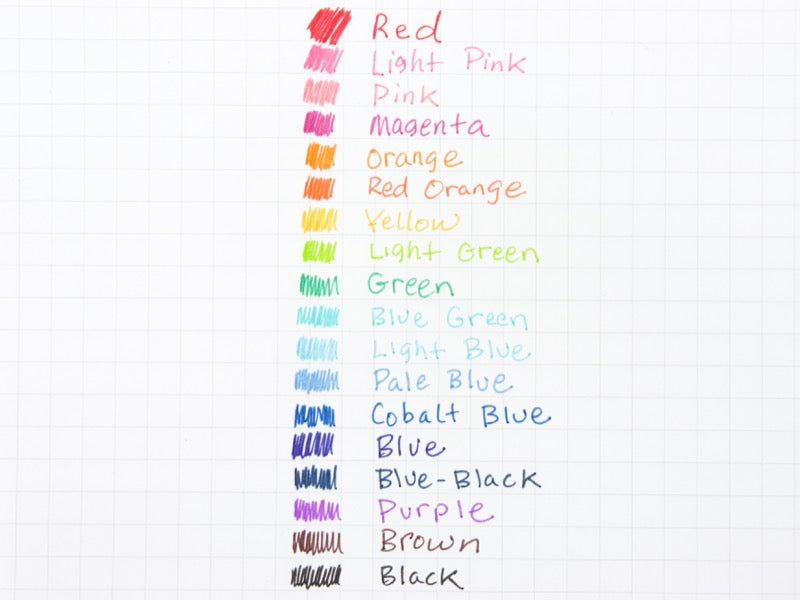 Red
Light Pink
Pink
Magenta
Orange
Red Orange
Yellow
Light Green
Green
Blue Green
Light Blue
Pale Blue
Cobalt Blue
Blue
Blue-Black
Purple
Brown
Black